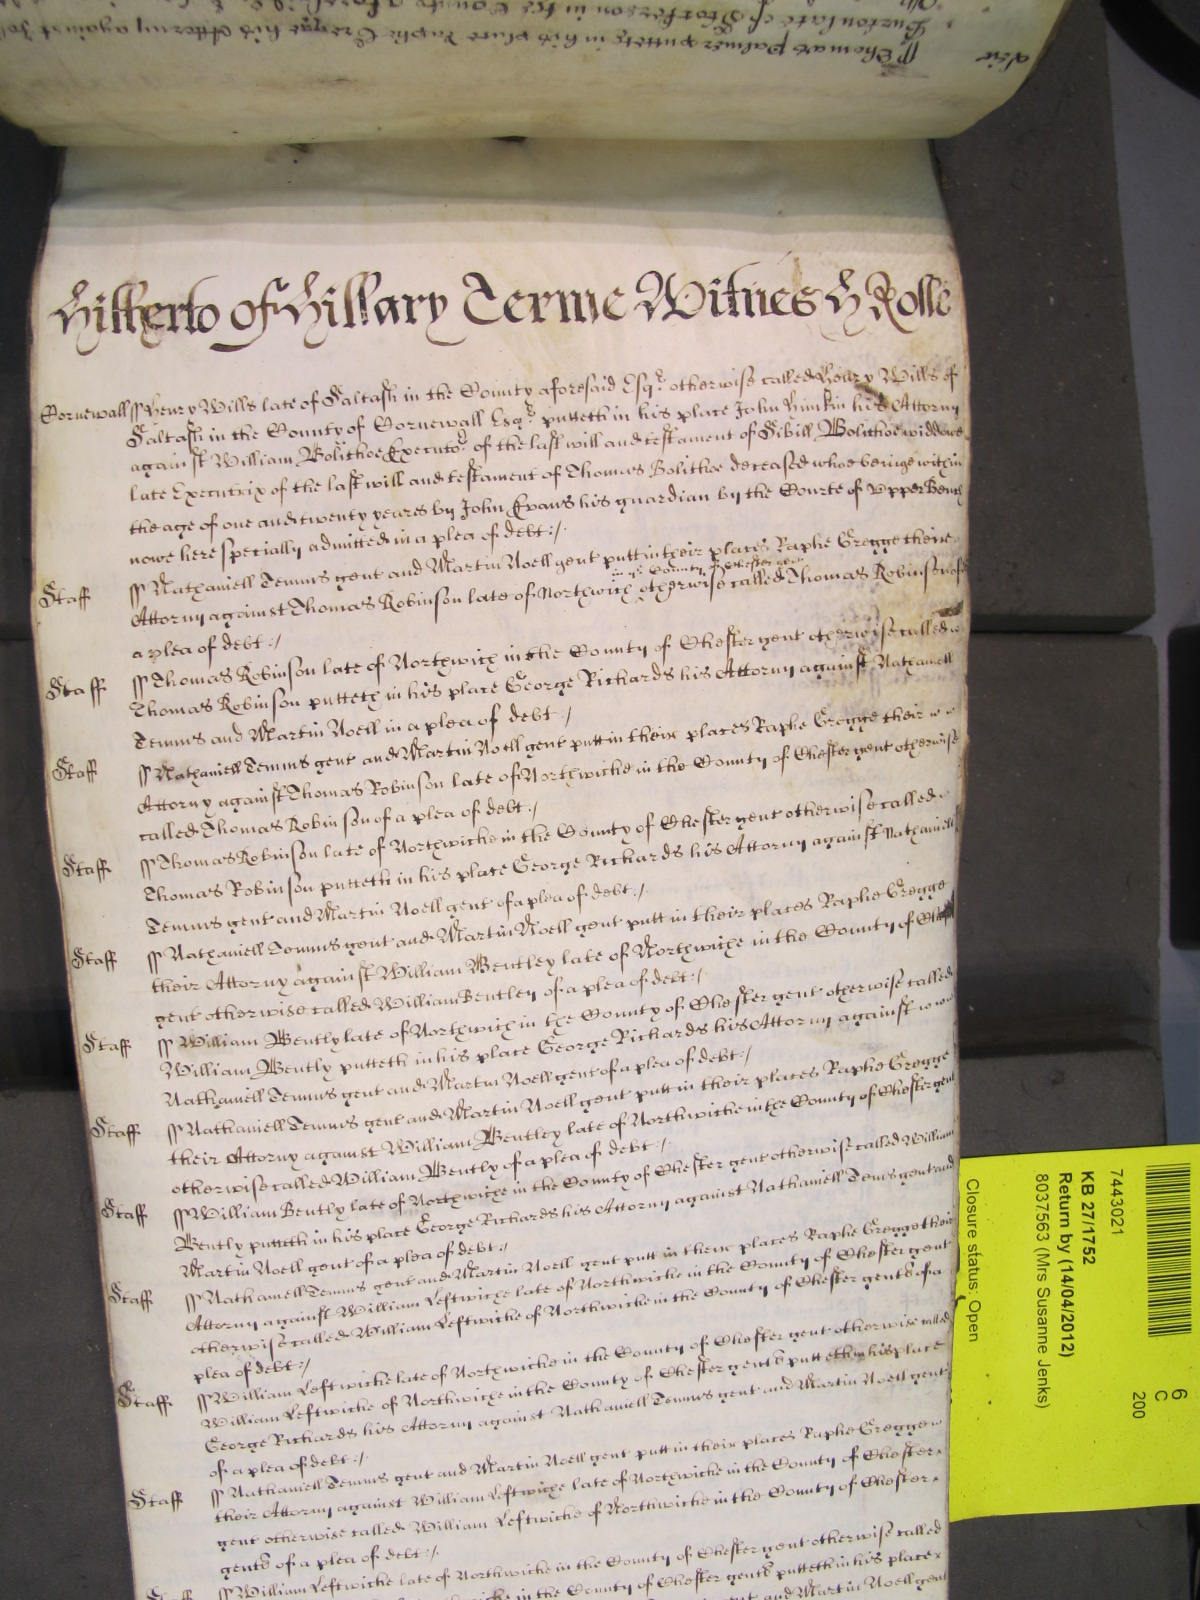 Thomas Palmer puttetho in his place Raphe Gregge his Attorny against
Hitherto of Hillary Terme Witnes H Rolle
Cornewall ss Henry Wills late of Saltash in the County aforesaid Esqr. otherwise called Henry Wills of
Saltash in the County of Cornewall Esqr. putteth in his place John his Attorny
against William Bolithoe Executor. of the last will and testament of Sibill Bolithoe widdowe
late Executrix of the last will and testament of Thomas Bolithoe deceased whoe beinge within
the age of one and twenty yeares by John Evans his guardian by the Courte of Upper Bench
nowe here specially admitted in a plea of debt:/.
Staff ss Nathaniell Temms gent and Martin Noell gent putt in their places Raphe Gregge their
in ye County of Chester gent
Attorny against Thomas Robinson late of Northwich otherwise called Thomas Robinson of
a plea of debt:/
Staff ss Thomas Robinson late of Northwich in the County of Chester gent otherwise called
Thomas Robinson putteth in his place George Richards his Attorny against Nathaniell
Temms and Martin Noell in a plea of debt:/
Staff ss Nathaniell Temms gent and Martin Noell gent putt in their places Raphe Gregge their
Attorny against Thomas Robinson late of Northwiche in the County of Chester gent otherwise
called Thomas Robinson of a plea of debt:/
Staff ss Thomas Robinson late of Northwiche in the County of Chester gent otherwise called
Thomas Robinson putteth in his place George Richards his Attorny against Nathaniell
Temms gent and Martin Noell gent of a plea of debt:/.
Staff ss Nathaniell Temms gent and Martin Noell gent putt in their places Raphe Gregge
their Attorny against William Bentley late of Northwiche in the County of Chester
gent otherwise called William Bentley of a plea of debt:/.
Staff ss William Bently late of Northwich in the County of Chester gent otherwise called
William Bently putteth in his place George Richards his Attorny against
Nathaniell Temms gent and Martin Noell gent of a plea of debt:/
Staff ss Nathaniell Temms gent and Martin Noell gent putt in their places Raphe Gregge
their Attorny against William Bentley late of Northwiche in the County of Chester gent
otherwise called William Bently of a plea of debt:/
Staff ss William Bently late of Northwiche in the County of Chester gent otherwise called William
Bently putteth in his place George Richards his Attorny against Nathaniell Temms gent and
Martin Noell gent of a plea of debt:/
Staff ss Nathaniell Temms gent and Martin Noell gent putt in their places Raphe Gregge their
Attorny against William Leftwiche late of Northwiche in the County of Chester gent
otherwise called William Leftwiche of Northwiche in the County of Chester gent of a
plea of debt:/
Staff ss William Leftwiche late of Northwiche in the County of Chester gent otherwise called
William Leftwiche of Northwiche in the County of Chester gent putteth in his place
George Richards his Attorny against Nathaniell Temms gent and Martin Noell gent
of a plea of debt:/.
Staff ss Nathaniell Temms gent and Martin Noell gent putt in their places Raphe Gregge
their Attorny against William Leftwiche late of Northwiche in the County of Chester
gent otherwise called William Leftwiche of Northwiche in the County of Chester
gent of a plea of debt:/.
Staff ss William Leftwiche late of Northwiche in the County of Chester gent otherwise called
in the County of Chester gent putteth in his place
gent and Martin Noell gent
7443021
KB 27/1752
Return by (14/04/2012)
8037563 (Mrs Susanne Jenks)
Closure status: Open
6
C
200